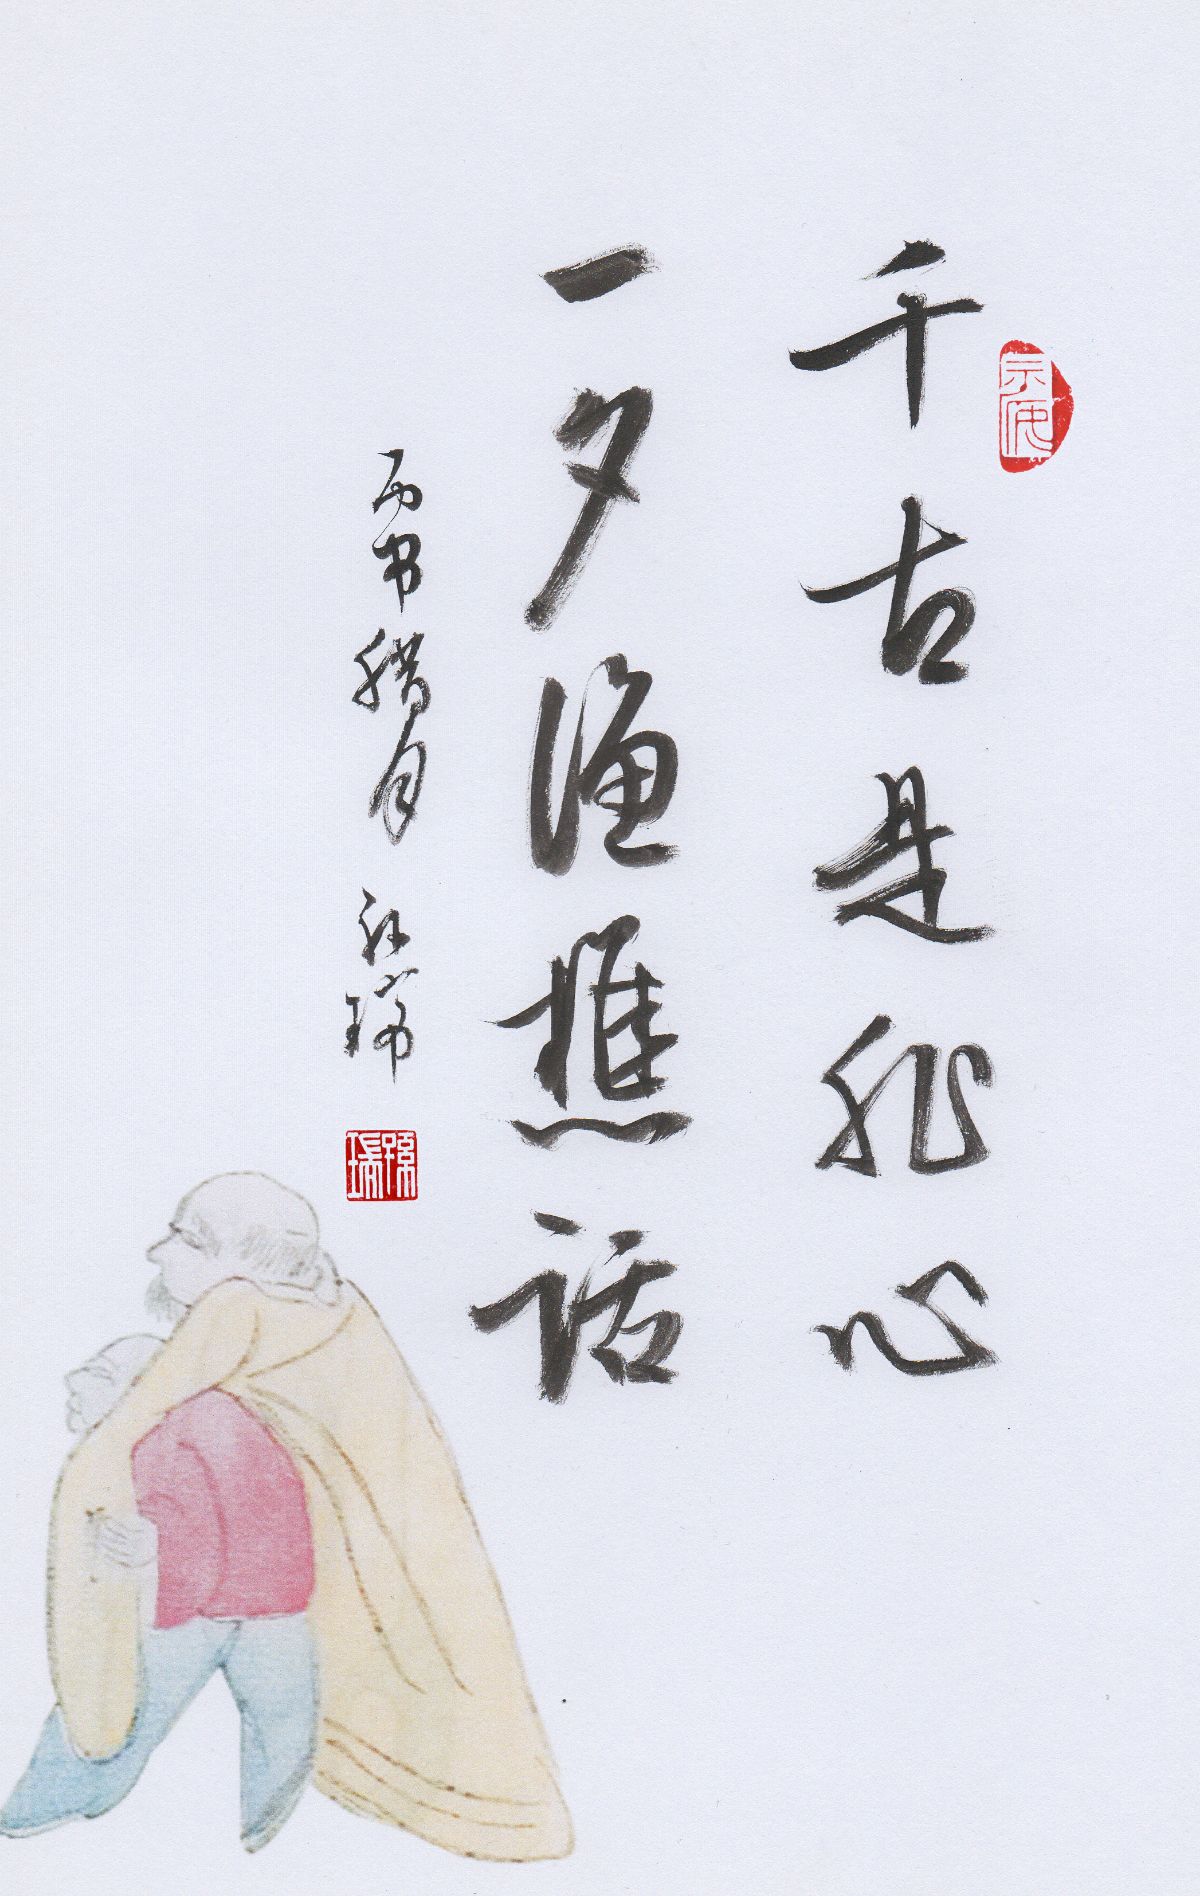 千古是非心
一夕渔樵话
丙申腊月 孙瑞
孙瑞